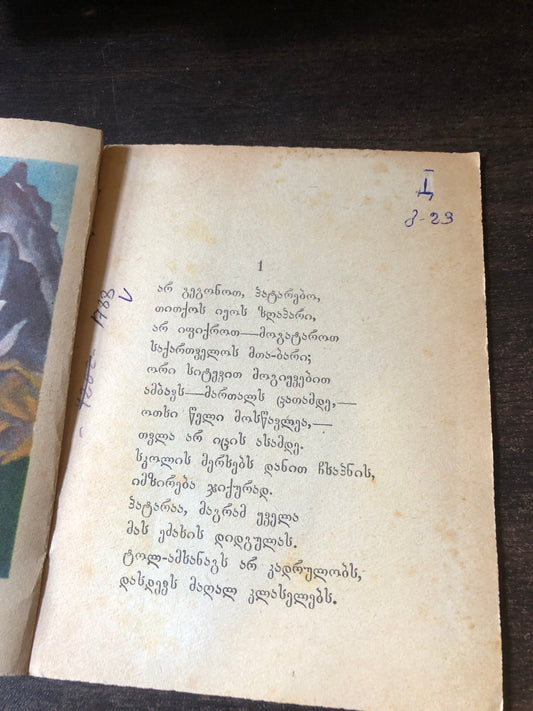 Д
მ-29
1788
1
არ გეგონოთ, პატარებო,
თითქოს იყოს ზღაპარი,
არ იფიქროთ—მოგატაროთ
საქართველოს მთა-ბარი;
ორი სიტყვით მოგიყვებით
ამბავს—მართალს ცათამდე,—
ოთხი წელი მოსწავლეა,—
თვლა არ იცის ასამდე.
სკოლის მერხებს დანით ჩხაპნის,
იმზირება ჯიქურად.
პატარაა, მაგრამ ყველა
მას ეძახის დიდგულას.
ტოლ-ამხანაგს არ კადრულობს,
დასდევს მაღალ კლასელებს.